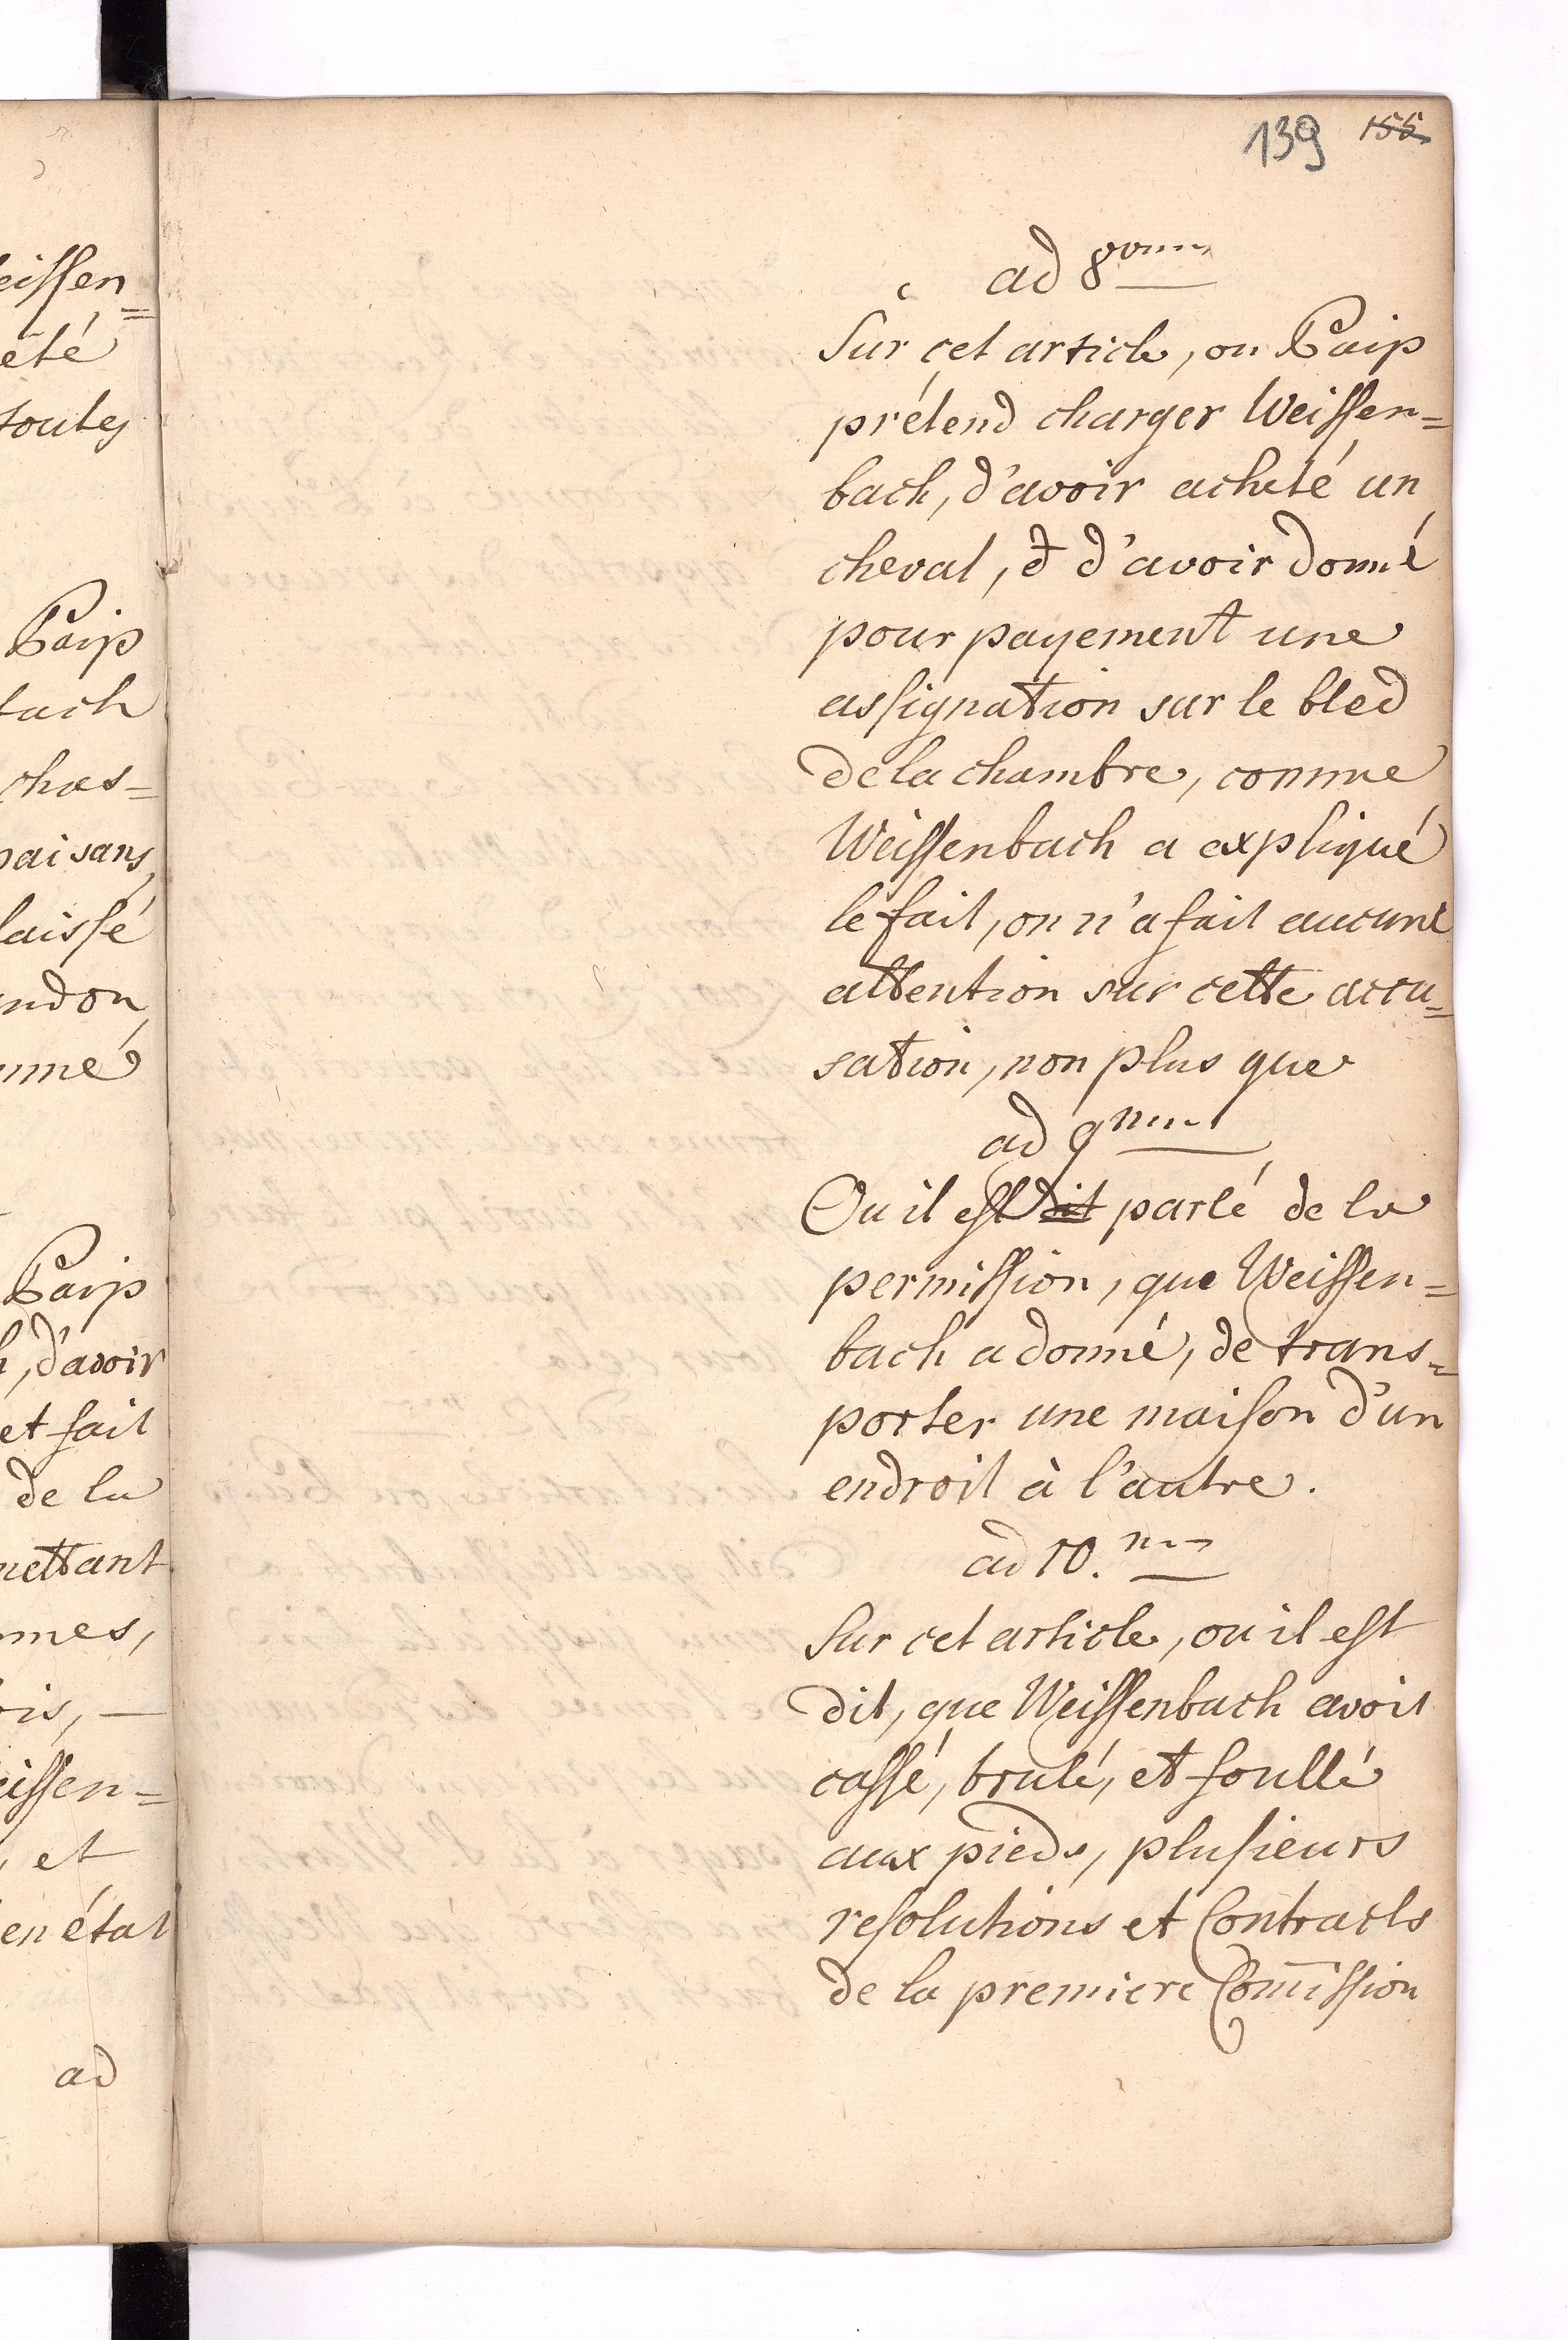 eissen=
eté
toutes
Paip
bach
chas=
paisans,
laissé
ndon
nmé
Paip
h, d'avoir
et fait
de la
mettant
mmes,
ois, —
eissen=
, et
en état
ad
139 155
ad 8vum
Sur cet article, ou Paip
prétend charger Weissen=
bach, d'avoir acheté un
cheval, & d'avoir donné
pour payement une
assignation sur le bled
de la chambre, comme
Weissenbach a expliqué
le fait, on n'a fait aucune
attention sur cette accu=
sation, non plus que
ad 9num
Ou il est dit parlé de la
permission, que Weissen=
bach a donné, de trans=
porter une maison d'un
endroit à l'autre.
ad 10.mum
Sur cet article, ou il est
dit, que Weissenbach avoit
cassé, brulé, et foullé
aux pieds, plusieurs
resolutions et Contracts
de la premiere Com̄ission